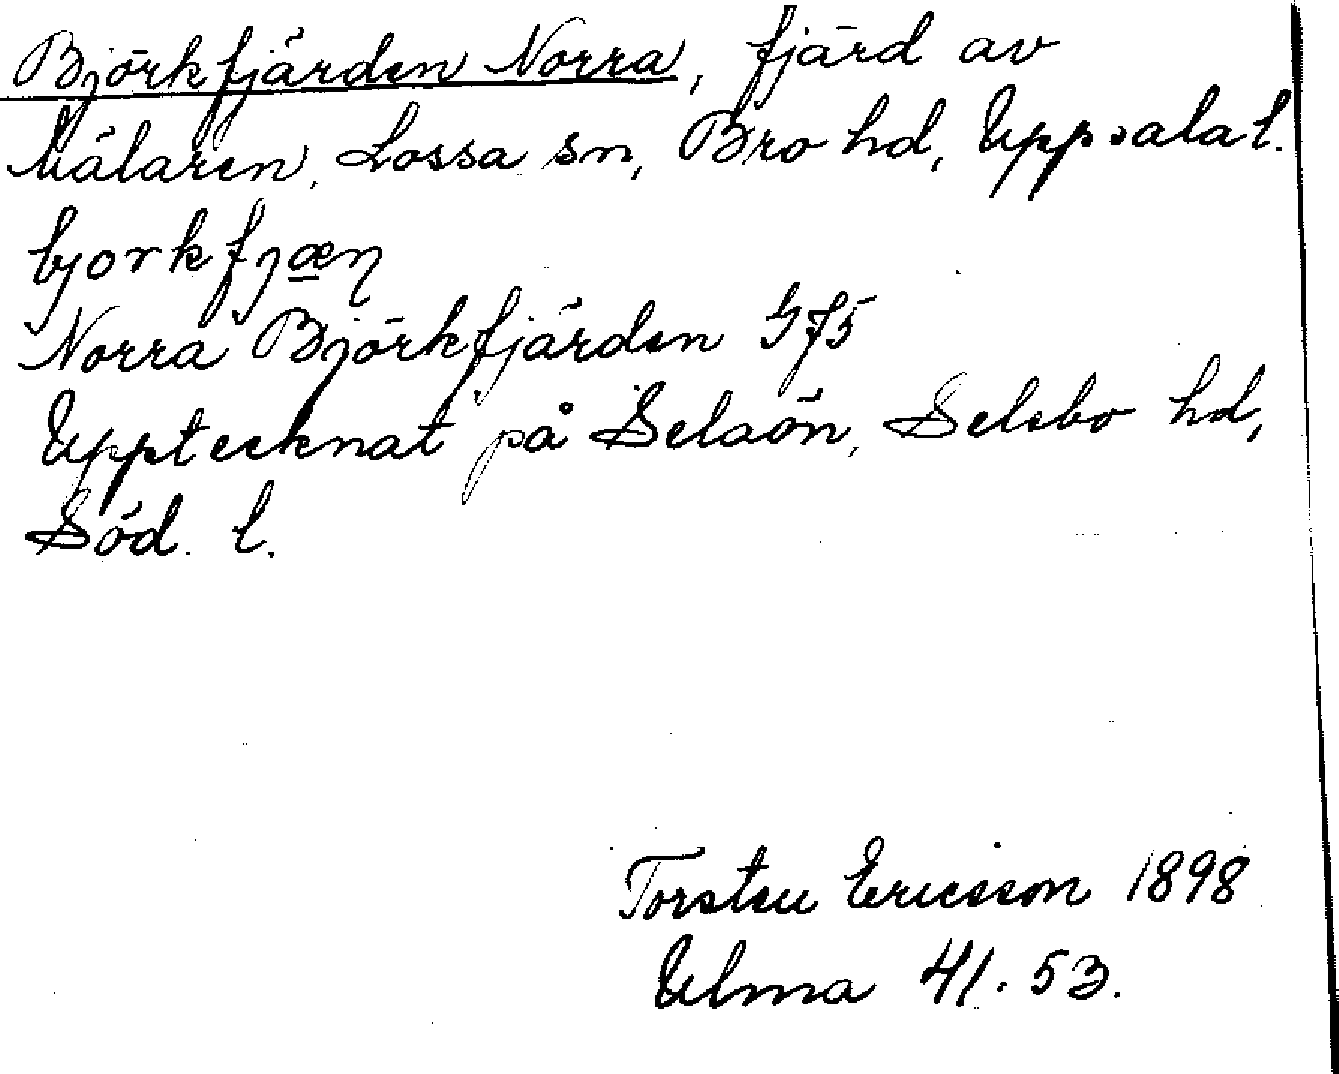 Björkfjärden Norra, fjärd av
Mälaren, Lossa sn, Bro hd, Uppsala l.
bjorkfjæ̲ɳ
Norra Björkfjärden G75
Upptecknat på Selaön, Selebo hd,
Söd. l.
Torsten Ericsson 1898
Ulma 41. 53.